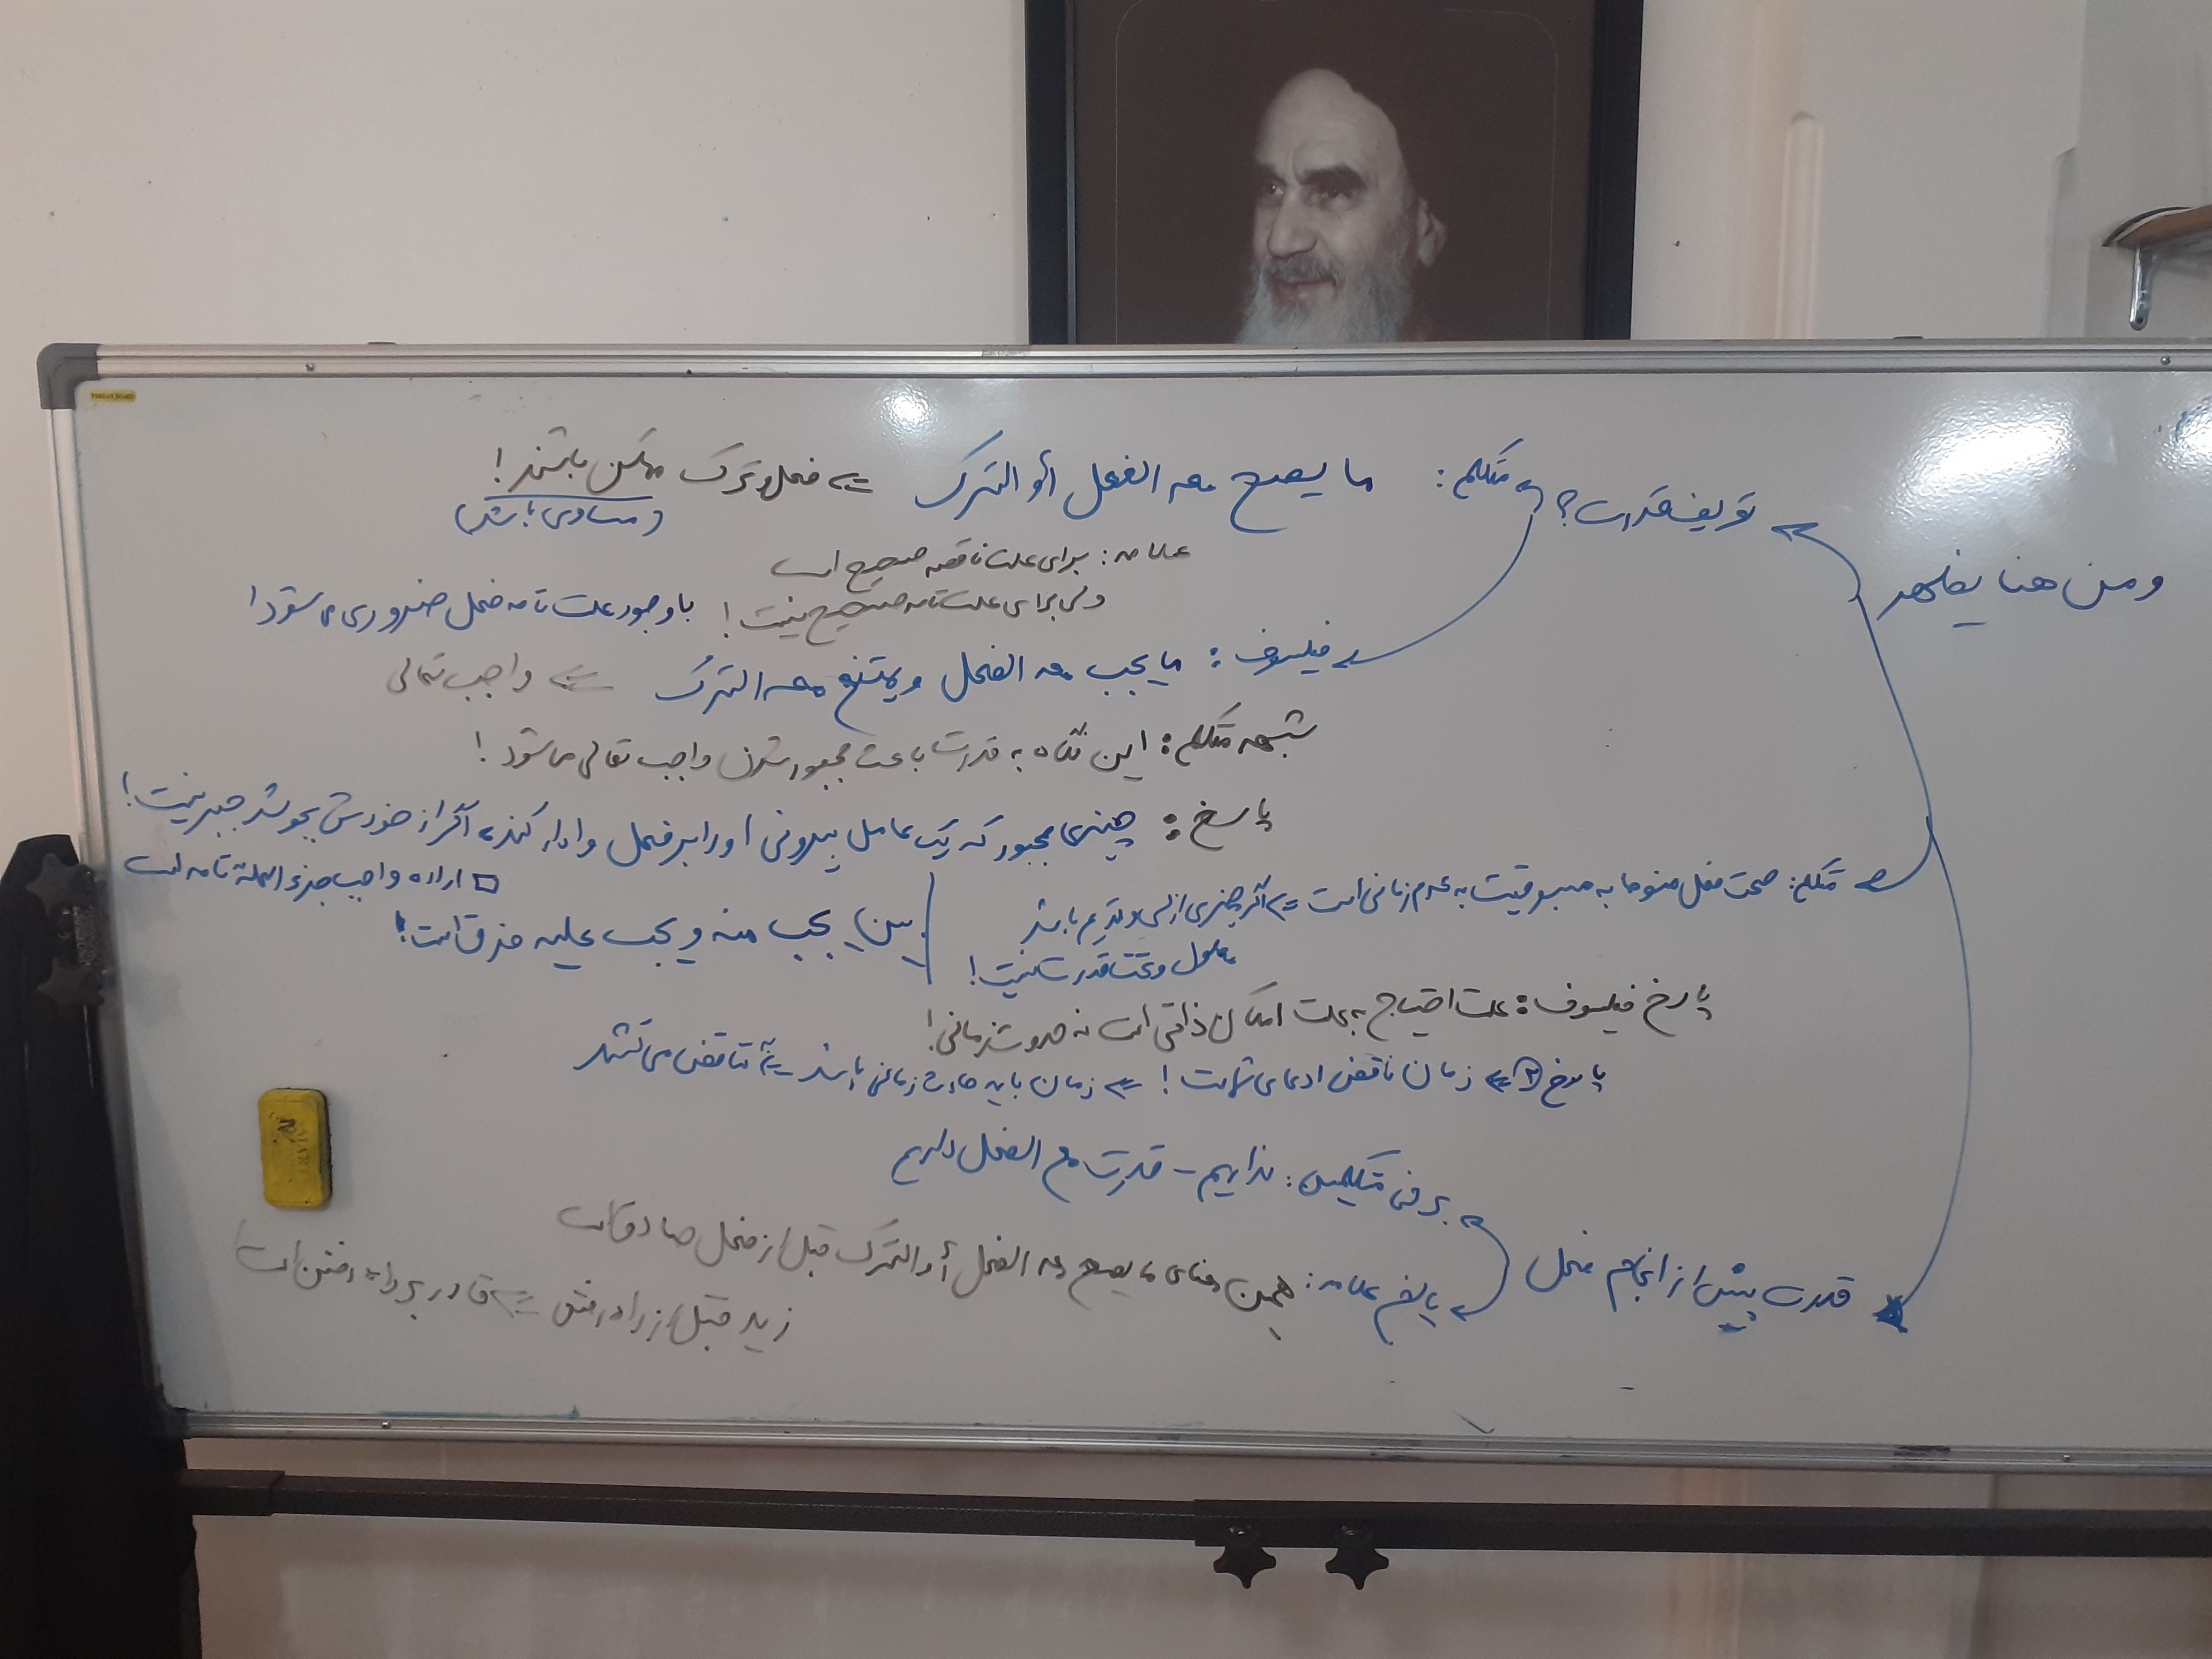 ومن هنا یظهر
تعریف قدرت؟
متکلم: ما یصح معه الفعل أو الترک ⇐ فعل و ترک ممکن باشند!
(مساوی باشد)
علامه: برای علت ناقصه صحیح است
ولی برای علت تامه صحیح نیست! با وجود علت تامه فعل ضروری می‌شود!
فیلسوف: ما یجب معه الفعل و یمتنع معه الترک ⇐ واجب تعالی
شبهه متکلم: این نگاه به قدرت باعث مجبور شدن واجب تعالی می‌شود!
پاسخ: چیزی مجبور که یک عامل بیرونی او را بر فعل وادار کند، اگر از خودش بجوشد جبر نیست!
□ اراده واجب جزء العلة تامه است
بین یجب منه و یجب علیه فرق است!
متکلم: صحت فعل منوط به مسبوقیت به عدم زمانی است ⇐ اگر چیزی ازلی و قدیم باشد
معلول و تحت قدرت نیست!
پاسخ فیلسوف: علت احتیاج به علت امکان ذاتی است نه حدوث زمانی!
پاسخ ۲ ⇐ زمان ناقض ادعای شماست! ⇐ زمان باید حادث زمانی باشد ⇐ تناقض می‌کشد
قدرت پیش از انجام فعل
برخی متکلمین: نداریم - قدرت مع الفعل داریم
پاسخ علامه: همین معنای ما یصح معه الفعل أو الترک قبل از فعل صادق است
زید قبل از راه رفتن ⇐ قادر بر راه رفتن است!
PARSIAN BOARD